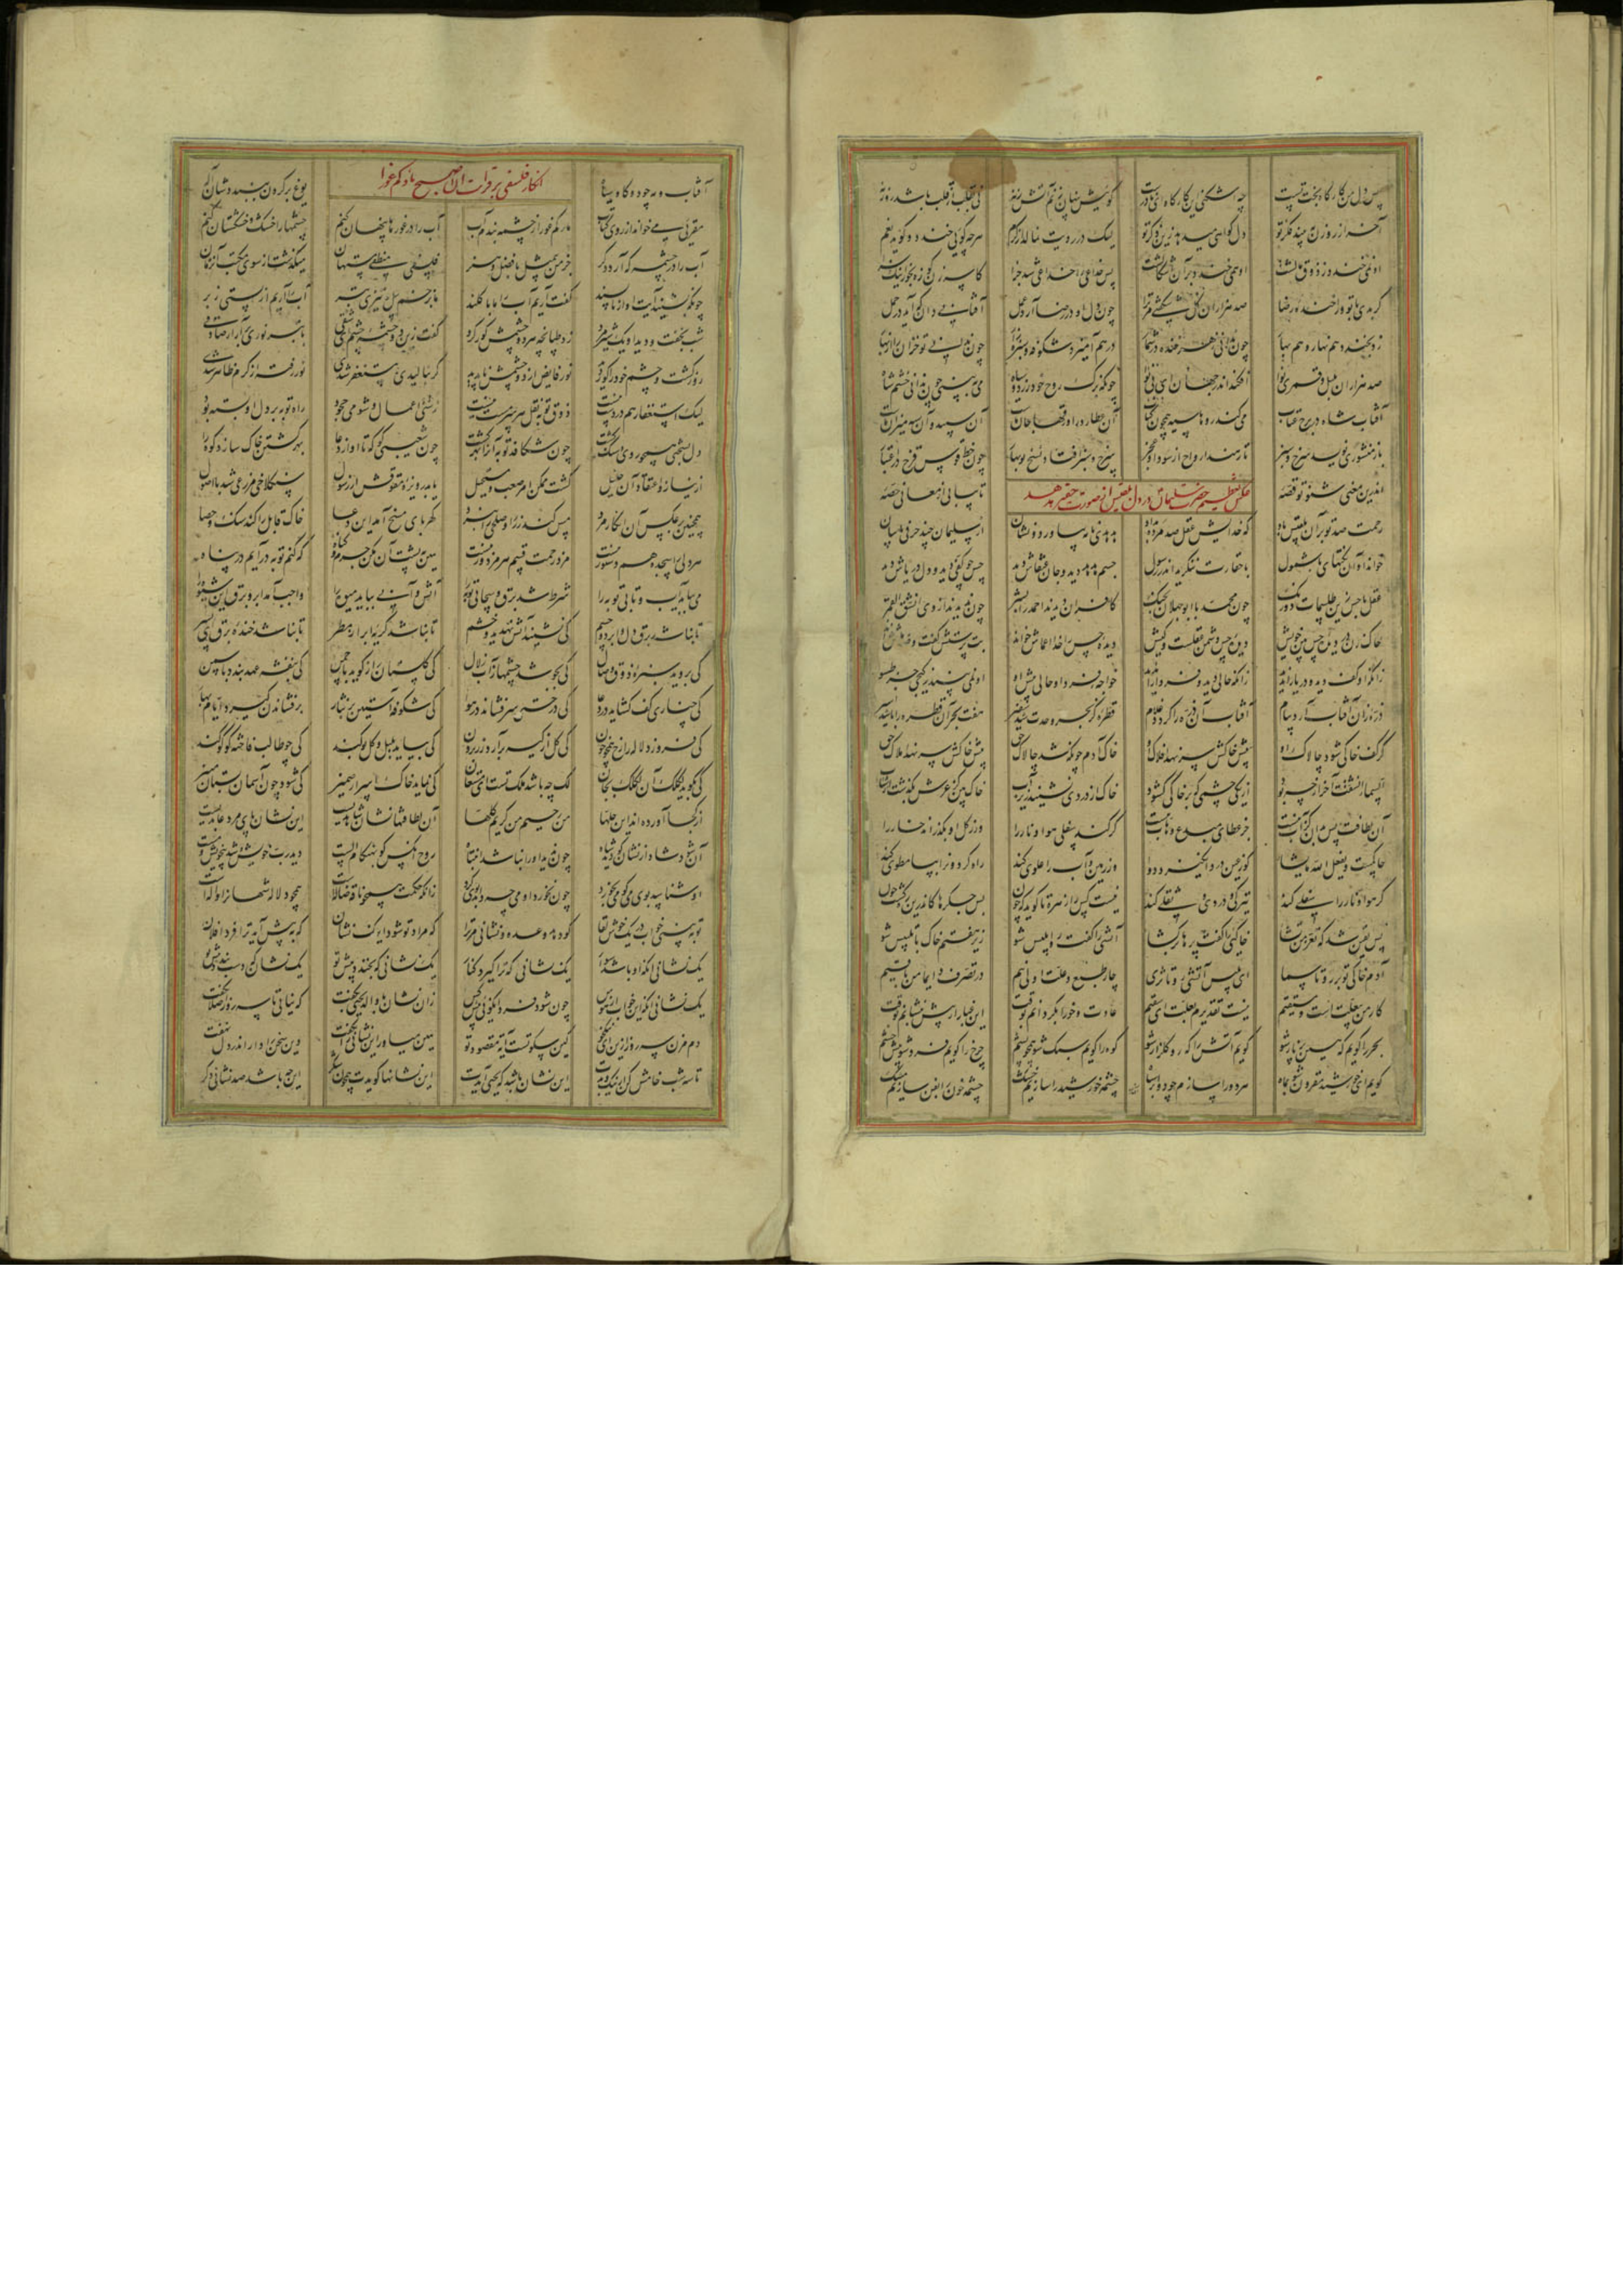 پس دل من کارگاه بخت تست چه شکنی این کارگاه ای نادرست گوییش پنهان زنم آتش زنه نی بقلب از قلب باشد روزنه
آخر از روزن ببیند فکر تو دل گواهی میدهد زین ذکر تو لیک در رویت نمالد از کرم هرچه گویی خندد و گوید نعم
او نمی خندد ز ذوق مالشت او همی خندد بر آن اسگالشت پس خداعی را خداعی شد جزا کاسه زن کوزه بخور اینک سزا
گر بدی با تو ورا خنده رضا صد هزاران گل شکفتی مر ترا چون دل او در رضا آرد عمل آفتابی دان که آید در حمل
زو بخندد هم نهار و هم بهار چون ندانی رمز خنده در ثمار در هم آمیزد شکوفه و سبزه زار چون ندانی تو خزان را از بهار
صد هزاران بلبل و قمری نوا افکند اندر جهان بی نوا چونکه برگ روح خود زرد و سیاه می ببینی چون ندانی خشم شاه
آفتاب شاه در برج عتاب می کند روها سیه همچون کتاب آن عطارد را ورقها جان ماست آن سپیده و آن سیه میزان ماست
باز منشوری نویسد سرخ و سبز تا رهند ارواح از سودا و عجز سرخ و سبز افتاد نسخ نوبهار چون خط قوس قزح در اعتبار
اندرین معنی شنو تو قصه تا بیابی از معانی حصه
عکس تعظیم حضرت سلیمان در دل بلقیس از صورت حقیر هدهد
رحمت صد تو بر آن بلقیس باد که خدایش عقل صد مرده بداد هدهدی نامه بیاورد و نشان از سلیمان چند حرفی با بیان
خواند او آن نکتهای با شمول با حقارت ننگرید اندر رسول جسم هدهد دید و جان عنقاش دید حس چو کفی دید و دل دریاش دید
عقل با حس زین طلسمات دو رنگ چون محمد با ابوجهلان بجنگ کافران دیدند احمد را بشر چون ندیدند از وی انشق القمر
خاک زن در دیده حس بین خویش دیده حس دشمن عقلست و کیش دیده حس را خدا اعماش خواند بت پرستش گفت و ضد ماش خواند
زانکه او کف دید و دریا را ندید زانکه حالی دید و فردا را ندید خواجه فردا و حالی پیش او او نمی بیند ز گنجی جز تسو
ذره زان آفتاب آرد پیام آفتاب آن ذره را گردد غلام قطره کز بحر وحدت شد سفیر هفت بحر آن قطره را باشد اسیر
گر کف خاکی شود چالاک او پیش خاکش سر نهد افلاک او خاک آدم چونکه شد چالاک حق پیش خاکش سر نهد املاک حق
السما انشقت آخر از چه بود از یکی چشمی که بر خاکی گشود خاک از دردی نشیند زیر آب خاک بین کز عرش بگذشت از شتاب
آن لطافت پس بدان کز آب نیست جز عطای مبدع وهاب نیست گر کند سفلی هوا و نار را ور ز گل او بگذراند خار را
حاکمست و یفعل الله ما یشا کو ز عین درد انگیزد دوا ور زمین و آب را علوی کند راه گردون را بپا مطوی کند
گر هوا و نار را سفلی کند تیرگی و دردی و ثقلی کند نیست کس را زهره تا گوید که چون بس جگرها کاندرین ره گشت خون
پس یقین شد که تعز من تشا خاکیی را گفت پرها برگشا آتشی را گفت رو ابلیس شو زیر هفتم خاک با تلبیس شو
آدم خاکی تو بر رو تا سها ای بلیس آتشی رو تا ثری چار طبع و علت اولی نیم در تصرف دایما من باقیم
کار من بی علتست و مستقیم نیست تقدیرم بعلت ای سقیم عادت خود را بگردانم بوقت این غبار از پیش بنشانم بوقت
بحر را گویم که هین پر نار شو گویم آتش را که رو گلزار شو کوه را گویم سبک شو همچو پشم چرخ را گویم فرو شو پیش چشم
گویم ای خورشید مقرون شو بماه هر دو را سازم چو دو ابر سیاه چشمه خورشید را سازیم خشک چشمه خون را بفن سازیم مشک
آفتاب و مه چو دو گاو سیاه یوغ بر گردن ببنددشان اله
انکار فلسفی بر قرات ان اصبح ماؤکم غورا
مقریی می خواند از روی کتاب ماؤکم غورا ز چشمه بندم آب آب را در غورها پنهان کنم چشمها را خشک و خشکستان کنم
آب را در چشمه که آرد دگر جز من بی مثل با فضل و هنر فلسفی منطقی مستهان میگذشت از سوی مکتب آن زمان
چونکه بشنید آیت او از ناپسند گفت آریم آب را ما با کلند ما بزخم بیل و تیزی تبر آب را آریم از پستی زبر
شب بخفت و دید او یک شیرمرد زد طپانچه هر دو چشمش کور کرد گفت زین دو چشمه چشم ای شقی با تبر نوری برآر ار صادقی
روز گشت و دو چشم خود را کور دید نور فایض از دو چشمش ناپدید گر بنالیدی و مستغفر شدی نور رفته از کرم ظاهر شدی
لیک استغفار هم در دست نیست ذوق توبه نقل هر سرمست نیست زشتی اعمال و شومی جحود راه توبه بر دل او بسته بود
دل بسختی همچو روی سنگ گشت چون شکافد توبه آنرا بهر کشت چون شعیبی کو که تا او از دعا بهر کشتن خاک سازد کوه را
از نیاز و اعتقاد آن خلیل گشت ممکن امر صعب و مستحیل یا بدریوزه مقوقس از رسول سنگلاخی مزرعی شد با اصول
همچنین بر عکس آن انکار مرد مس کند زر را و صلحی را نبرد کهربای مسخ آمد این دغا خاک قابل را کند سنگ و حصا
هر دلی را سجده هم دستور نیست مزد رحمت قسم هر مزدور نیست هین بپشت آن مکن جرم و گناه که کنم توبه درآیم در پناه
می بباید آب و تابی توبه را شرط شد برق و سحابی توبه را آتش و آبی بباید میوه را واجب آمد ابر و برق این شیوه را
تا نباشد برق دل و ابر دو چشم کی نشیند آتش تهدید و خشم تا نباشد گریه ابر از مطر تا نباشد خنده برق ای پسر
کی بروید سبزه ذوق وصال کی بجوشد چشمها ز آب زلال کی گلستان راز گوید با چمن کی بنفشه عهد بندد با سمن
کی چناری کف گشاید در دعا کی درختی سر فشاند در هوا کی شکوفه آستین پر نثار بر فشاندن گیرد ایام بهار
کی فروزد لاله را رخ همچو خون کی گل از کیسه برآرد زر برون کی بیاید بلبل و گل بو کند کی چو طالب فاخته کوکو کند
کی بگوید لکلک آن لک لک بجان لک چه باشد ملک تست ای مستعان کی نماید خاک اسرار ضمیر کی شود چون آسمان بستان منیر
از کجا آورده اند این حلها من رحیم من کریم کلها آن لطافتها نشان شاهدیست این نشان پای مرد عابدیست
آن شود شاد از نشان کو دید شاه چون ندید او را نباشد انتباه روح آنکس کو بهنگام الست دید رب خویش و شد بیخویش و مست
او شناسد بوی می کو می بخورد چون نخورد او می چه داند بوی کرد زانکه حکمت همچو ناقه ضاله است همچو دلاله شهان را داله است
تو ببینی خواب در یک خوش لقا کو دهد وعده و نشانی مر ترا که مراد تو شود اینک نشان که به پیش آید ترا فردا فلان
یک نشانی آنکه او باشد سوار یک نشانی که ترا گیرد کنار یک نشانی که بخندد پیش تو یک نشان که دست بندد پیش تو
یک نشانی آنکه این خواب از هوس چون شود فردا نگویی پیش کس زان نشان با والد یحیی بگفت که نیایی تا سه روز اصلا بگفت
دم مزن سه روز کین سکوتست آیت مقصود تو هین میاور این نشان را تو بگفت وین سخن را دار اندر دل نهفت
تا سه شب خامش کن از نیک و بدت این نشان باشد که یحیی آیدت این نشانها گویدت همچون شکر این چه باشد صد نشانی دگر